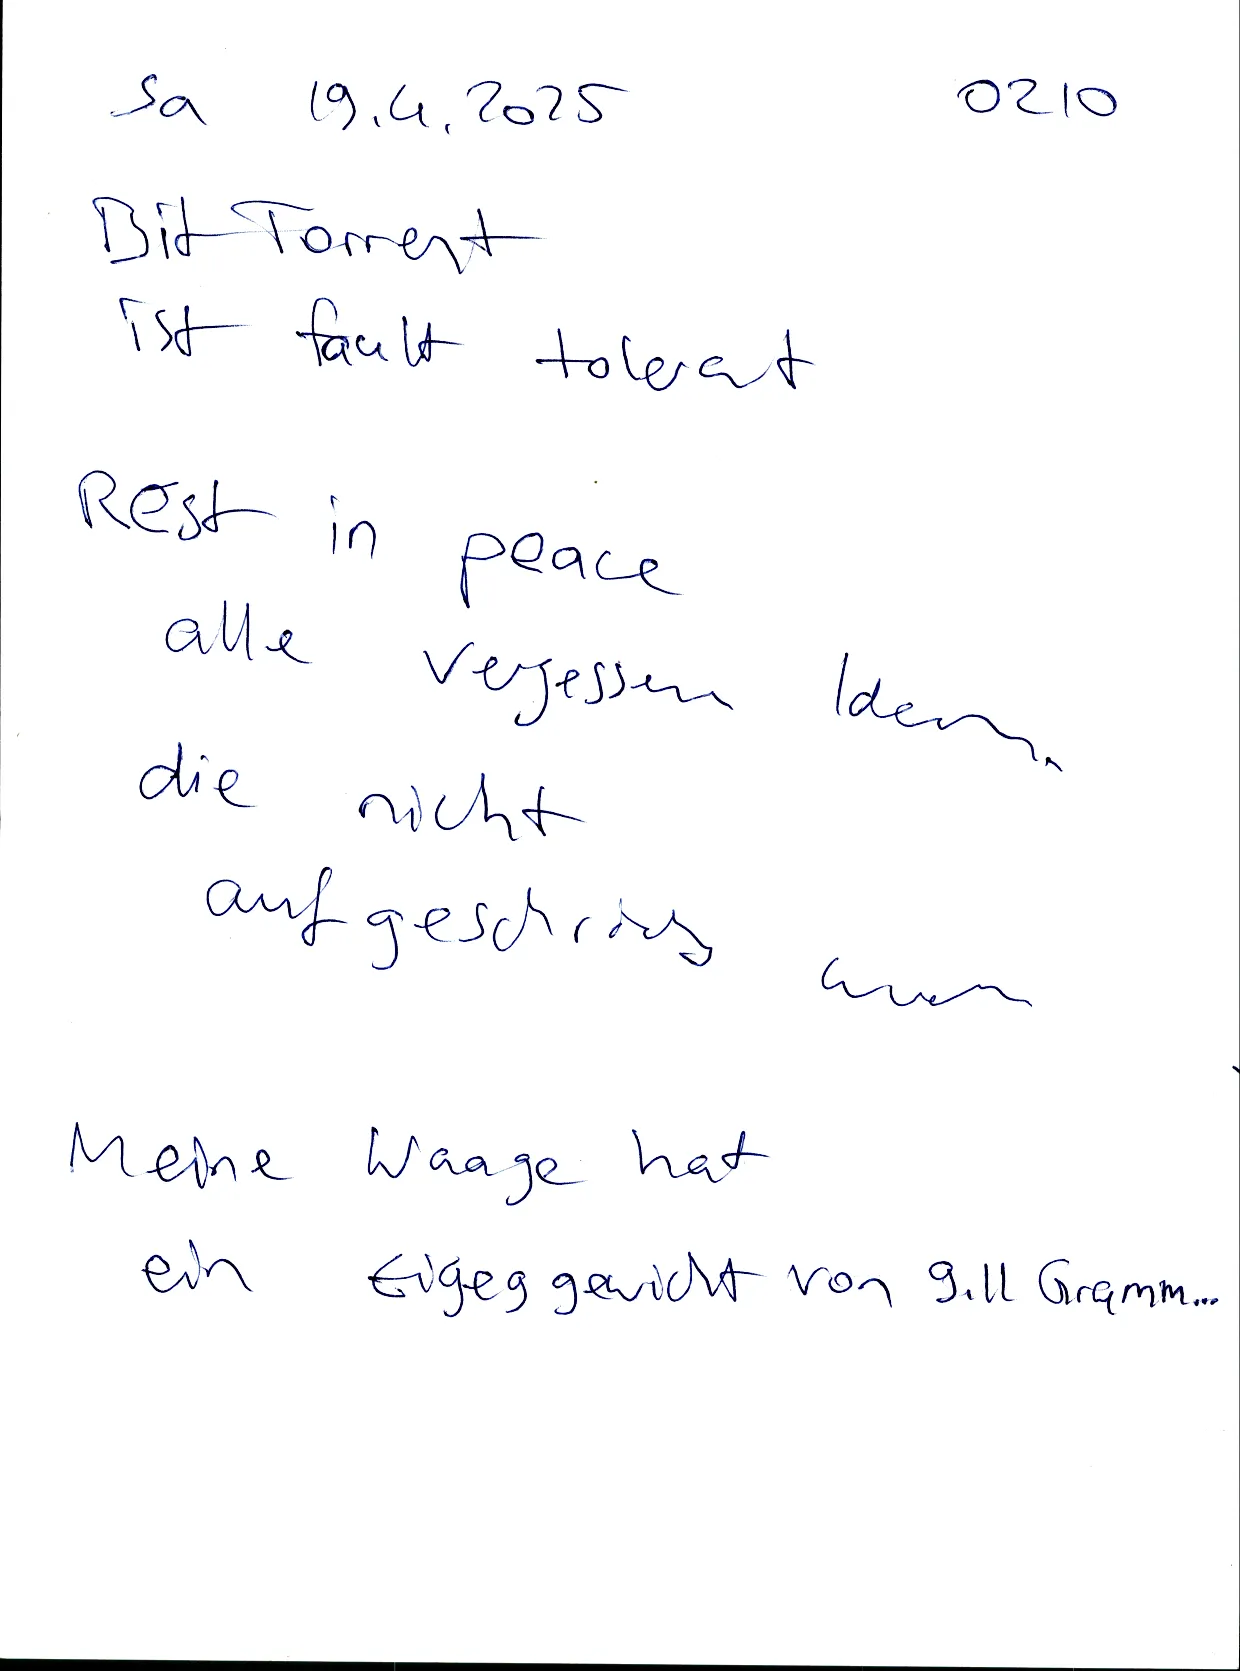 Sa 19.4.2025 0210
BitTorrent
ist fault tolerant
Rest in peace
alle vergessen Ideen,
die nicht
aufgeschrieben waren
Meine Waage hat
ein Eigeggewicht von 9.11 Gramm...